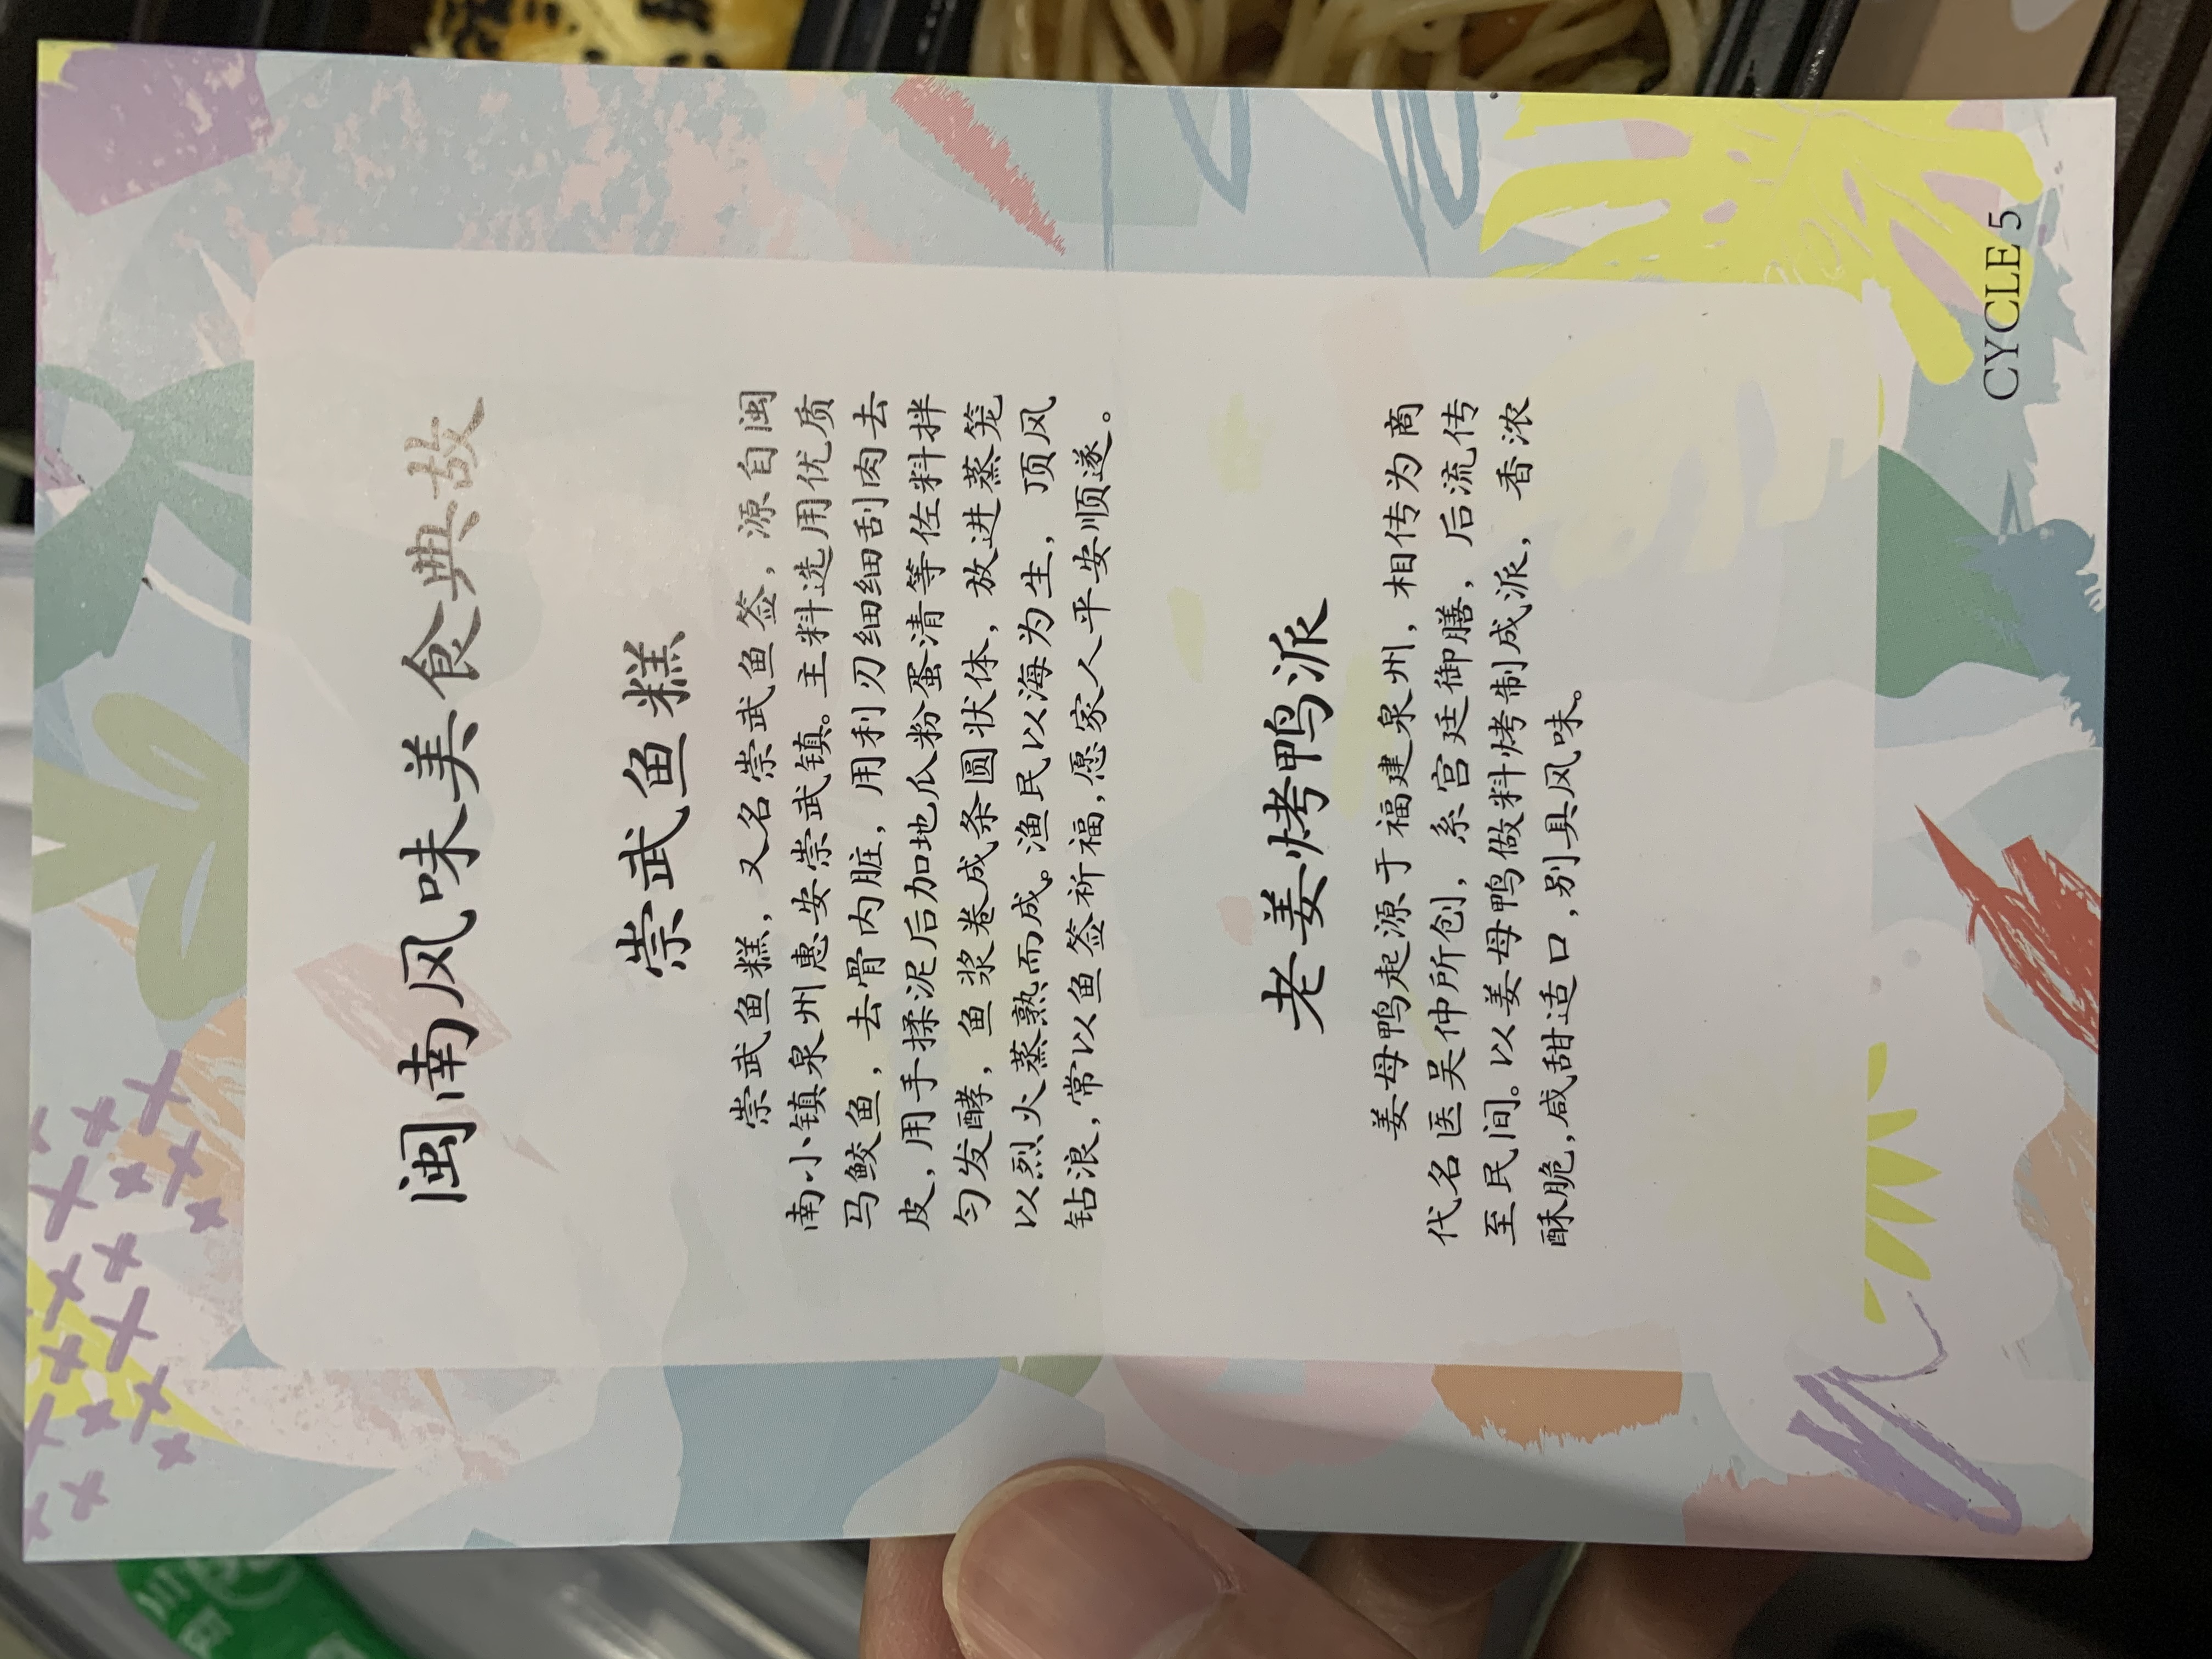 闽南风味美食典故
崇武鱼糕
崇武鱼糕，又名崇武鱼签，源自闽
南小镇泉州惠安崇武镇。主料选用优质
马鲛鱼，去骨内脏，用利刃细细刮肉去
皮，用手揉泥后加地瓜粉蛋清等佐料拌
匀发酵，鱼浆卷成条圆状体，放进蒸笼
以烈火蒸熟而成。渔民以海为生，顶风
钻浪，常以鱼签祈福，愿家人平安顺遂。
老姜烤鸭派
姜母鸭起源于福建泉州，相传为商
代名医吴仲所创，系宫廷御膳，后流传
至民间。以姜母鸭做料烤制成派，香浓
酥脆，咸甜适口，别具风味。
CYCLE 5